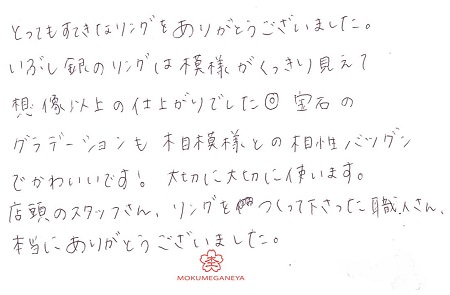 とってもすてきなリングをありがとうございました。
いぶし銀のリングは模様がくっきり見えて
想像以上の仕上がりでした◎ 宝石の
グラデーションも木目模様との相性バツグン
でかわいいです! 大切に大切に使います。
店頭のスタッフさん、リングをつくって下さった職人さん、
本当にありがとうございました。
MOKUMEGANEYA